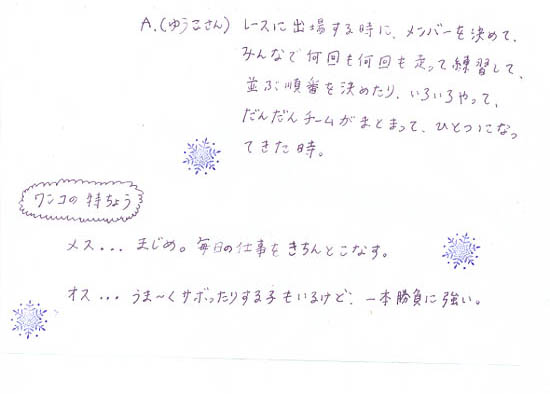 A.(ゆうこさん) レースに出場する時に、メンバーを決めて、
みんなで何回も何回も走って練習して、
並ぶ順番を決めたり、いろいろやって、
だんだんチームがまとまって、ひとつになっ
てきた時。
ワンコの特ちょう
メス... まじめ。毎日の仕事をきちんとこなす。
オス... うま〜くサボったりする子もいるけど、一本勝負に強い。